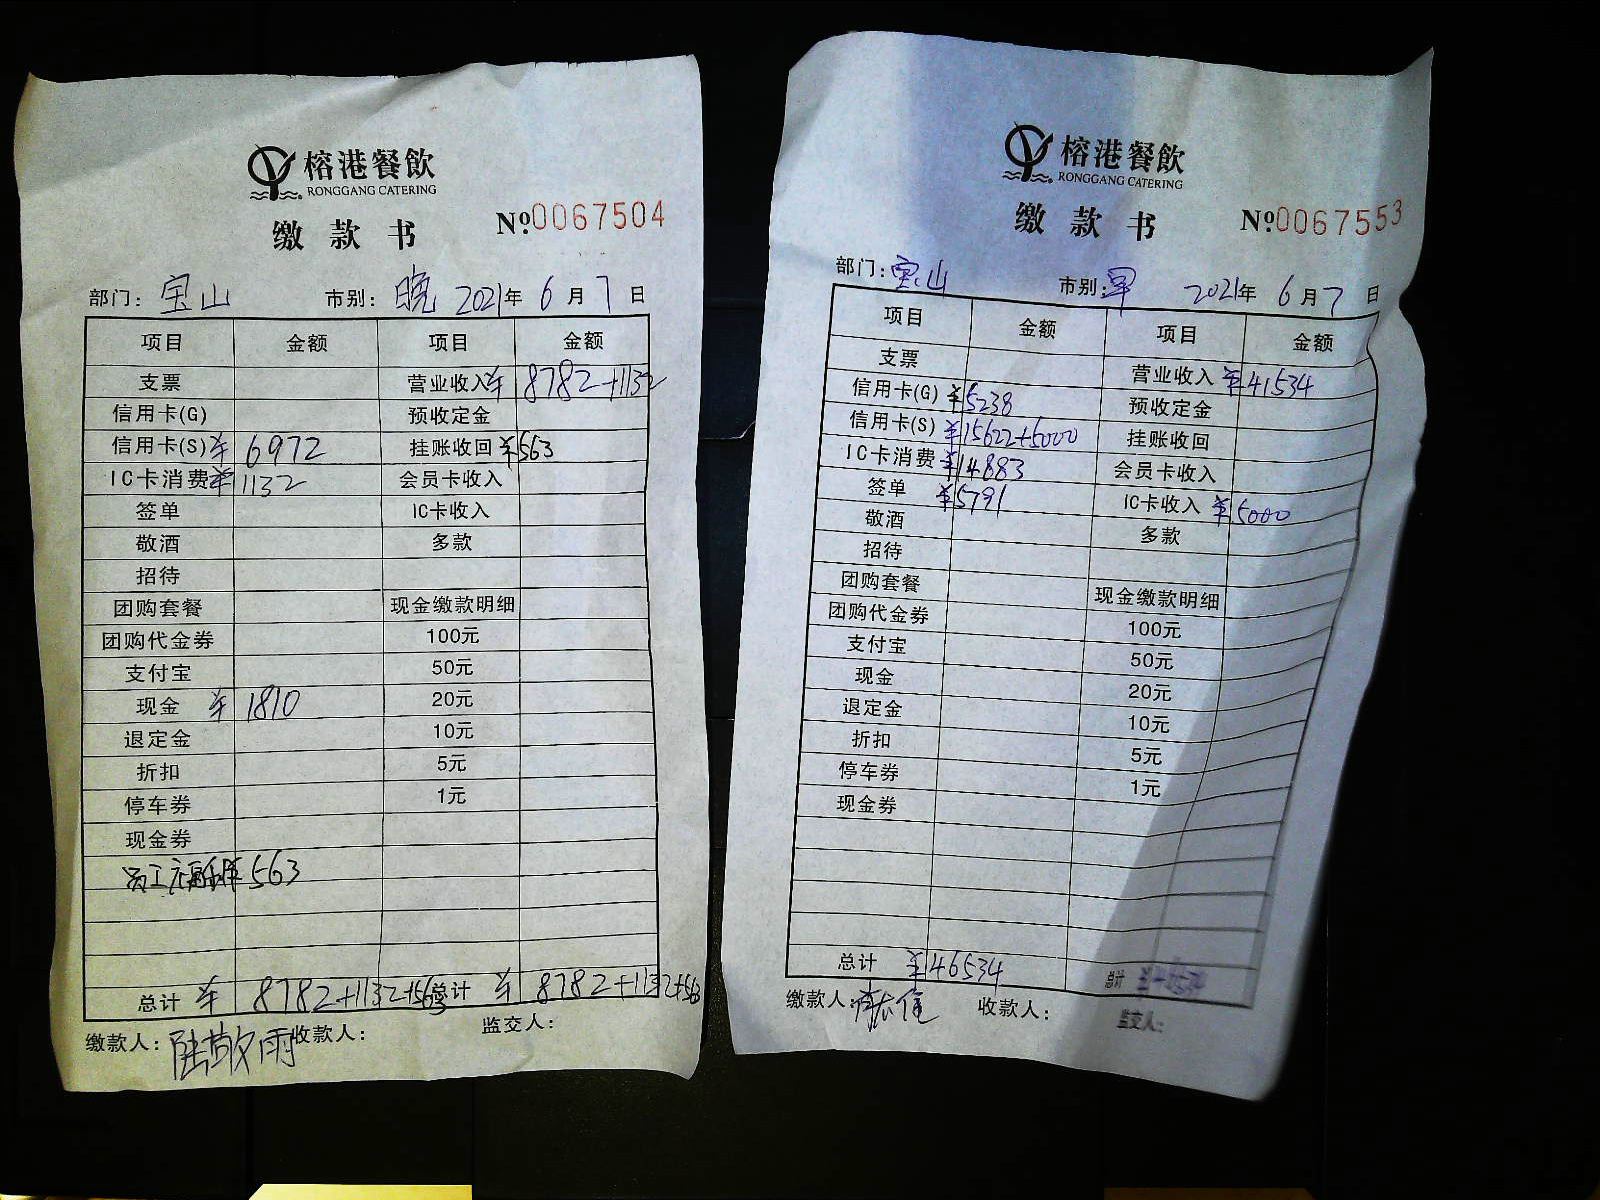 榕港餐飲
RONGGANG CATERING
缴款书 №0067504
部门: 宝山 市别: 晚 2021年 6月 7日
项目 金额 项目 金额
支票 营业收入 ¥8782+1132
信用卡(G) 预收定金
信用卡(S) ¥6972 挂账收回 ¥563
IC卡消费 ¥1132 会员卡收入
签单 IC卡收入
敬酒 多款
招待
团购套餐 现金缴款明细
团购代金券 100元
支付宝 50元
现金 ¥1810 20元
退定金 10元
折扣 5元
停车券 1元
现金券
员工 563
总计 ¥8782+1132+563 总计 ¥8782+1132+563
缴款人: 陆敬雨 收款人: 监交人:
榕港餐飲
RONGGANG CATERING
缴款书 №0067553
部门: 宝山 市别: 早 2021年 6月 7日
项目 金额 项目 金额
支票 营业收入 ¥41534
信用卡(G) ¥5238 预收定金
信用卡(S) ¥15622+5000 挂账收回
IC卡消费 ¥14883 会员卡收入
签单 ¥5791 IC卡收入 ¥5000
敬酒 多款
招待
团购套餐 现金缴款明细
团购代金券 100元
支付宝 50元
现金 20元
退定金 10元
折扣 5元
停车券 1元
现金券
总计 ¥46534 总计
缴款人: 收款人: 监交人: